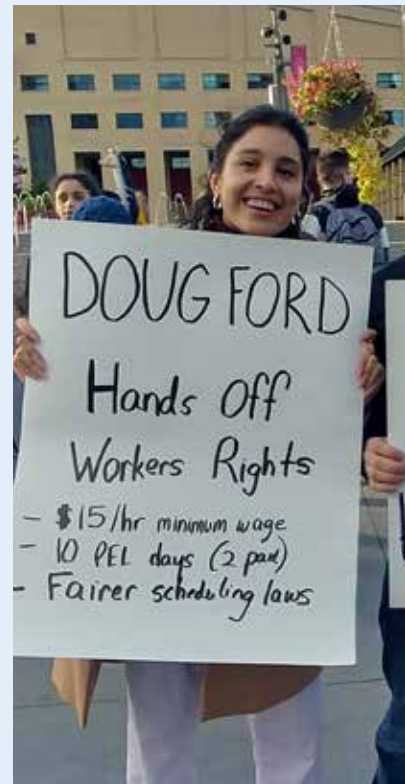 DOUG FORD
Hands Off
Workers Rights
- $15/hr minimum wage
- 10 PEL days (2 paid)
- Fairer scheduling laws